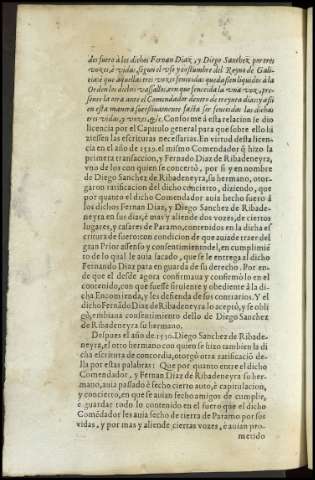 des fuero à los dichos Fernan Diaz, y Diego Sanchez por tres
vozes, è vidas, segun el vso y costumbre del Reyno de Gali-
zia: è que aquellas tres vozes fenecidas queda essen liquidos à la
Orden los dichos vassallos, en que fenecida la vna voz, pre-
sente la otra ante el Comendador dentro de treynta dias: y assi
en esta manera sucessiuamente hasta ser fenecidas las dichas
tres vidas, y vozes, &c. Conforme á esta relacion se dio
licencia por el Capitulo general para que sobre ello hi
ziessen las escrituras necessarias. En virtud desta licen-
cia en el año de 1529. el mismo Comendador q̃ hizo la
primera transaccion, y Fernãdo Diaz de Ribadeneyra,
vno de los con quien se concertò, por si y en nombre
de Diego Sanchez de Ribadeneyra, su hermano, otor-
garon ratificacion del dicho concierto, diziendo, que
por quanto el dicho Comendador auia hecho fuero à
los dichos Fernan Diaz, y Diego Sanchez de Ribade-
neyra en sus dias, è mas y aliende dos vozes, de ciertos
lugares, y casares de Paramo, contenidos en la dicha es
critura de fuero: con condicion de que auia de traer del
gran Prior assenso y consentimiento: è del, en cumplimiẽ
to de lo qual le auia sacado, que se le entrega al dicho
Fernando Diaz para en guarda de su derecho. Por en-
de que el desde agora confirmaua y confirmò lo en el
contenido, con que fuesse siruiente y obediente à la di-
cha Encomienda, y les defienda de sus contrarios. Y el
dicho Fernãdo Diaz de Ribadeneyra lo aceptò, y se obli
gò, embiana consentimiento dello de Diego Sanchez
de Ribadeneyra su hermano.
Despues el año de 1530. Diego Sanchez de Ribade-
neyra, el otro hermano con quien se hizo tambien la di
cha escritura de concordia, otorgò otra ratificaciõ de-
lla por estas palabras: Que por quanto entre el dicho
Comendador, y Fernan Diaz de Ribadeneyra su her-
mano, auia passado è fecho cierto auto, è capitulacion,
y concierto, en que se auian fecho amigos de cumplir,
è guardar todo lo contenido en el fuero que el dicho
Comẽdador les auia fecho de tierra de Paramo por sus
vidas, y por mas y aliende ciertas vozes, è auian pro-
metido